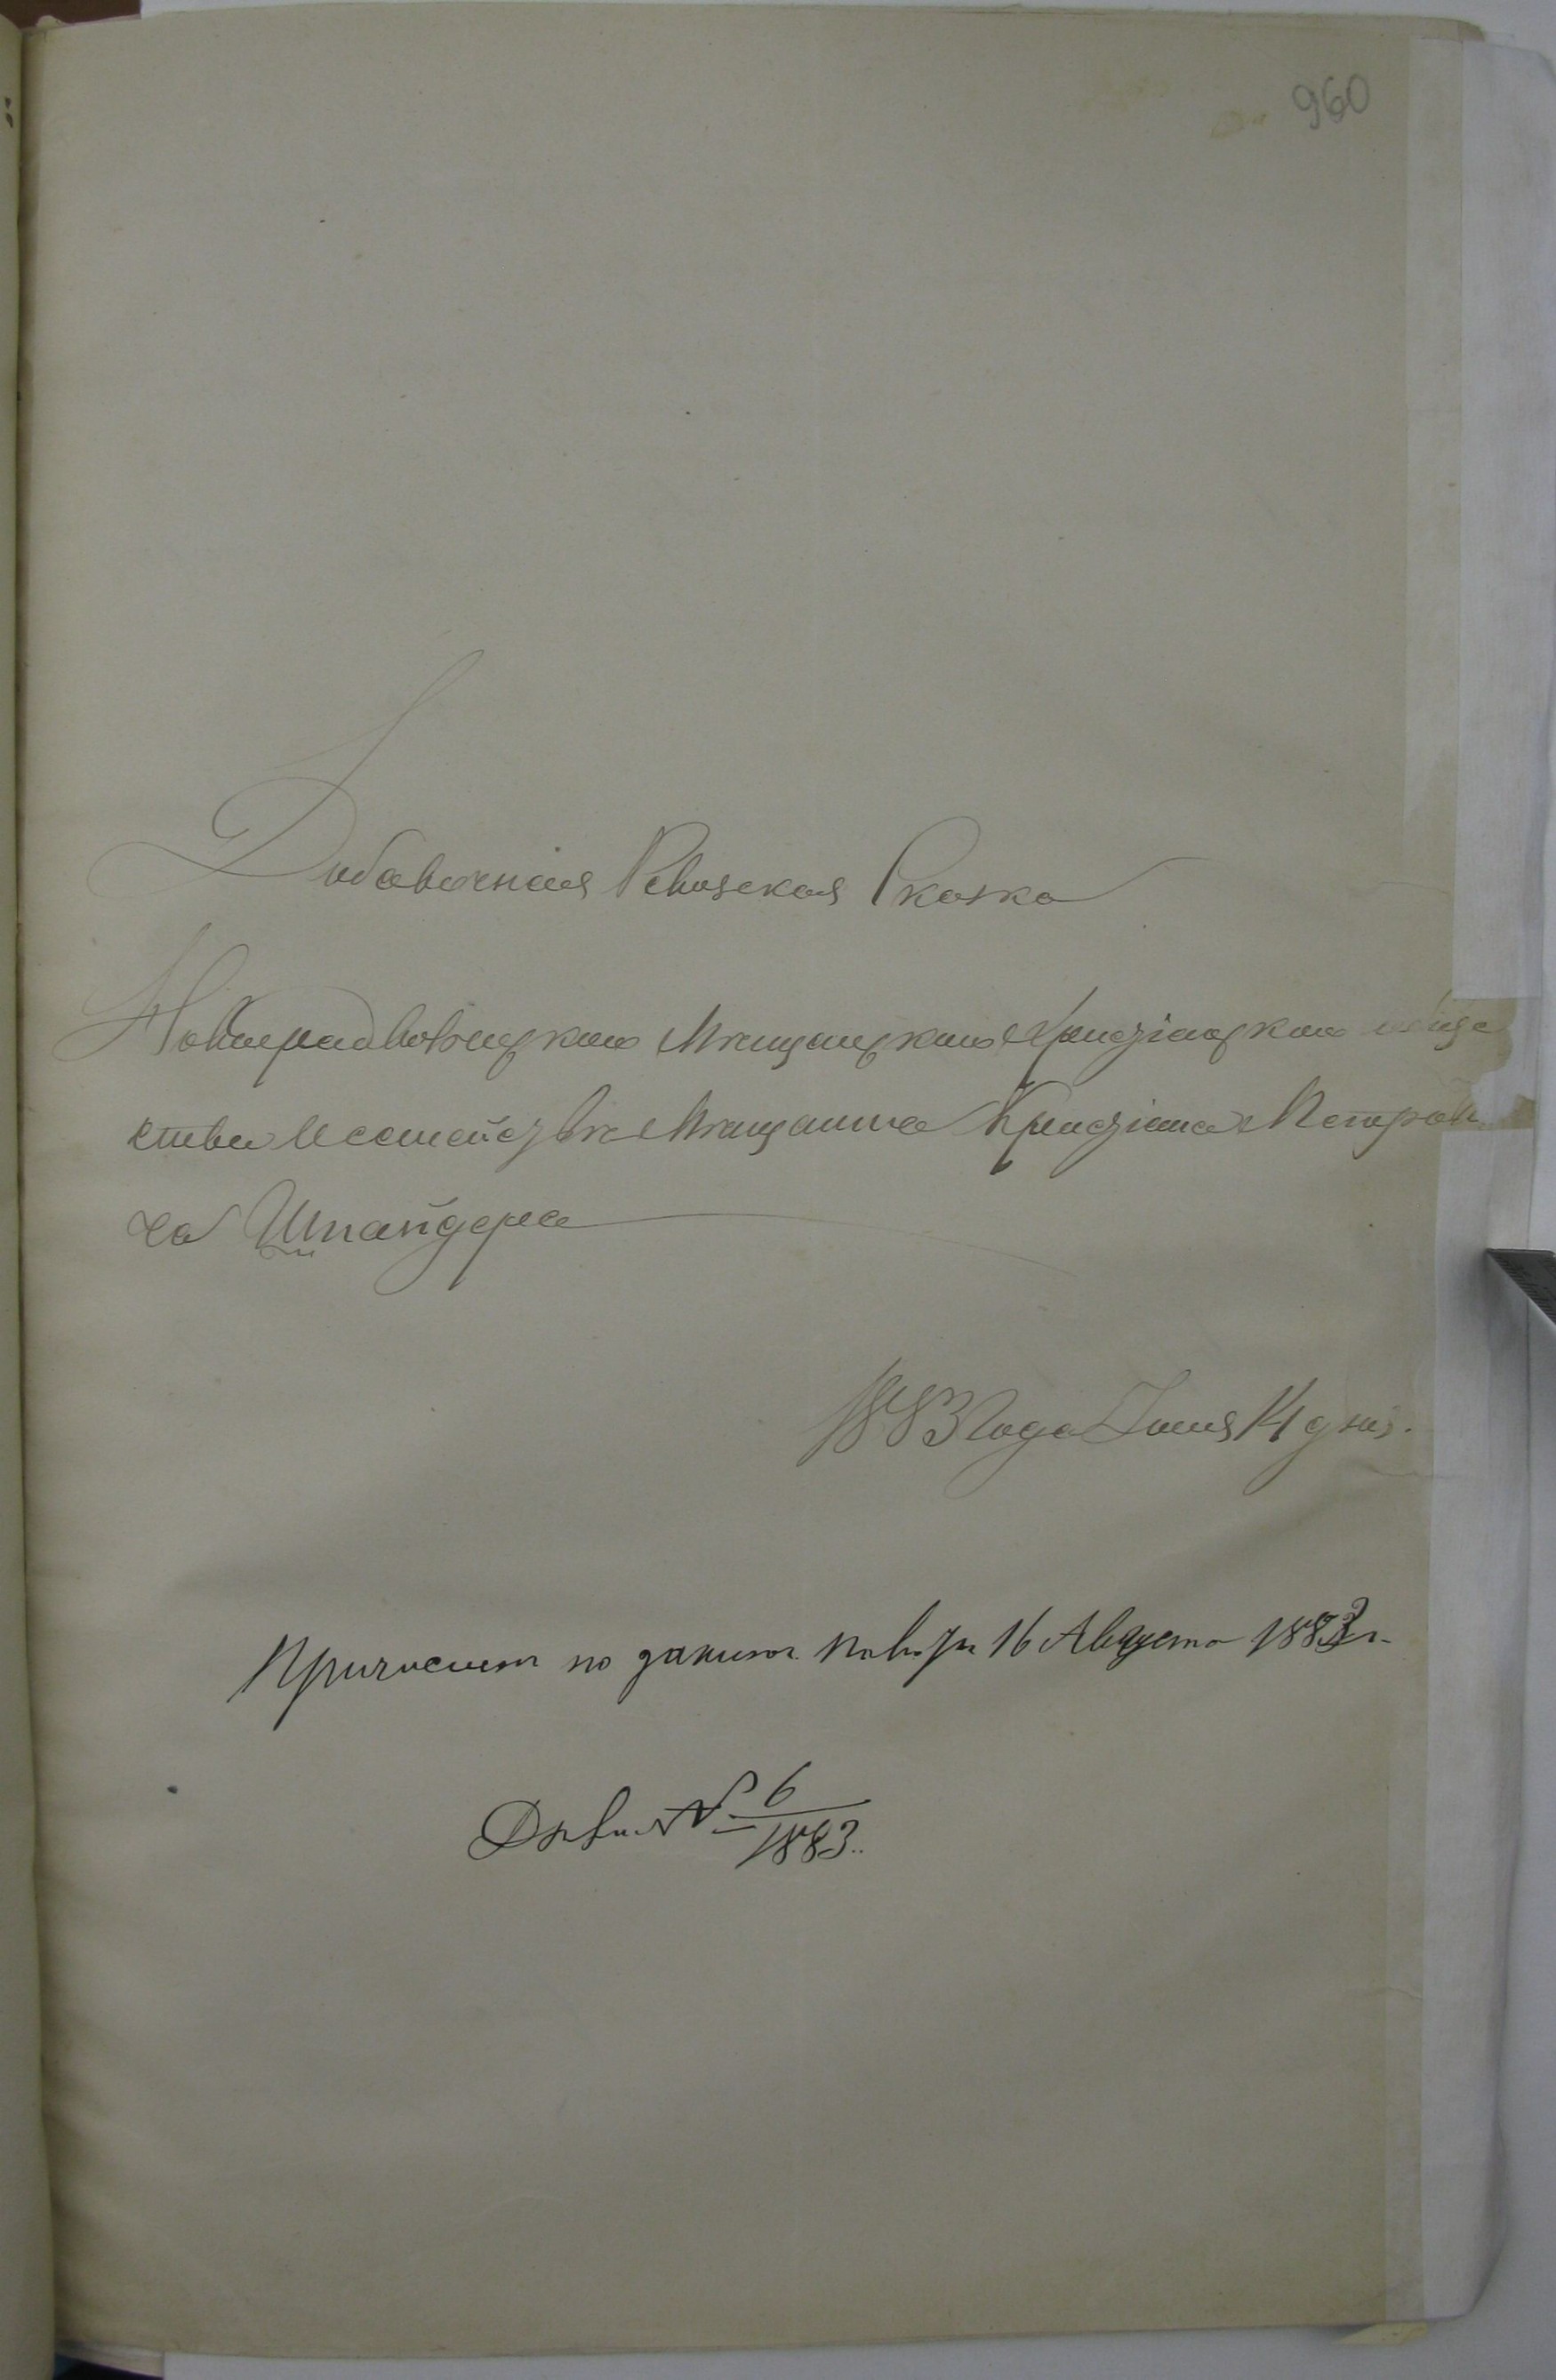 960
Добавочная Ревизская Сказка
Новоградволынскаго Мѣщанскаго Христіанскаго обще
ства о семействѣ Мѣщанина Христіана Петрови
ча Шпайдера
1883 года Іюня 14 дня.
Причислен по 16 Августа 1883 г.
№ 6
1883.